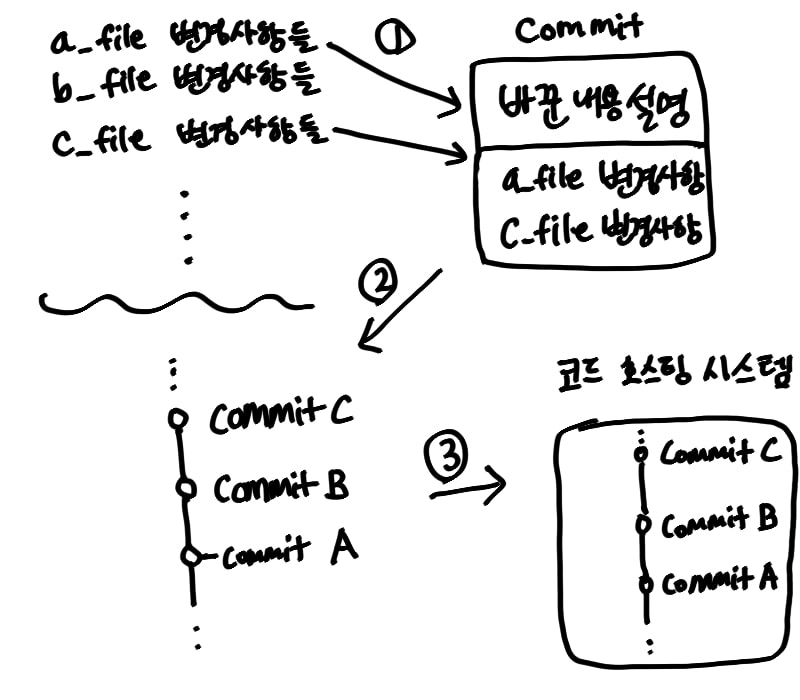 a_file 변경사항들
b_file 변경사항들
c_file 변경사항들
①
Commit
바꾼 내용 설명
a_file 변경사항
c_file 변경사항
②
Commit C
Commit B
Commit A
③
코드 호스팅 시스템
Commit C
Commit B
Commit A